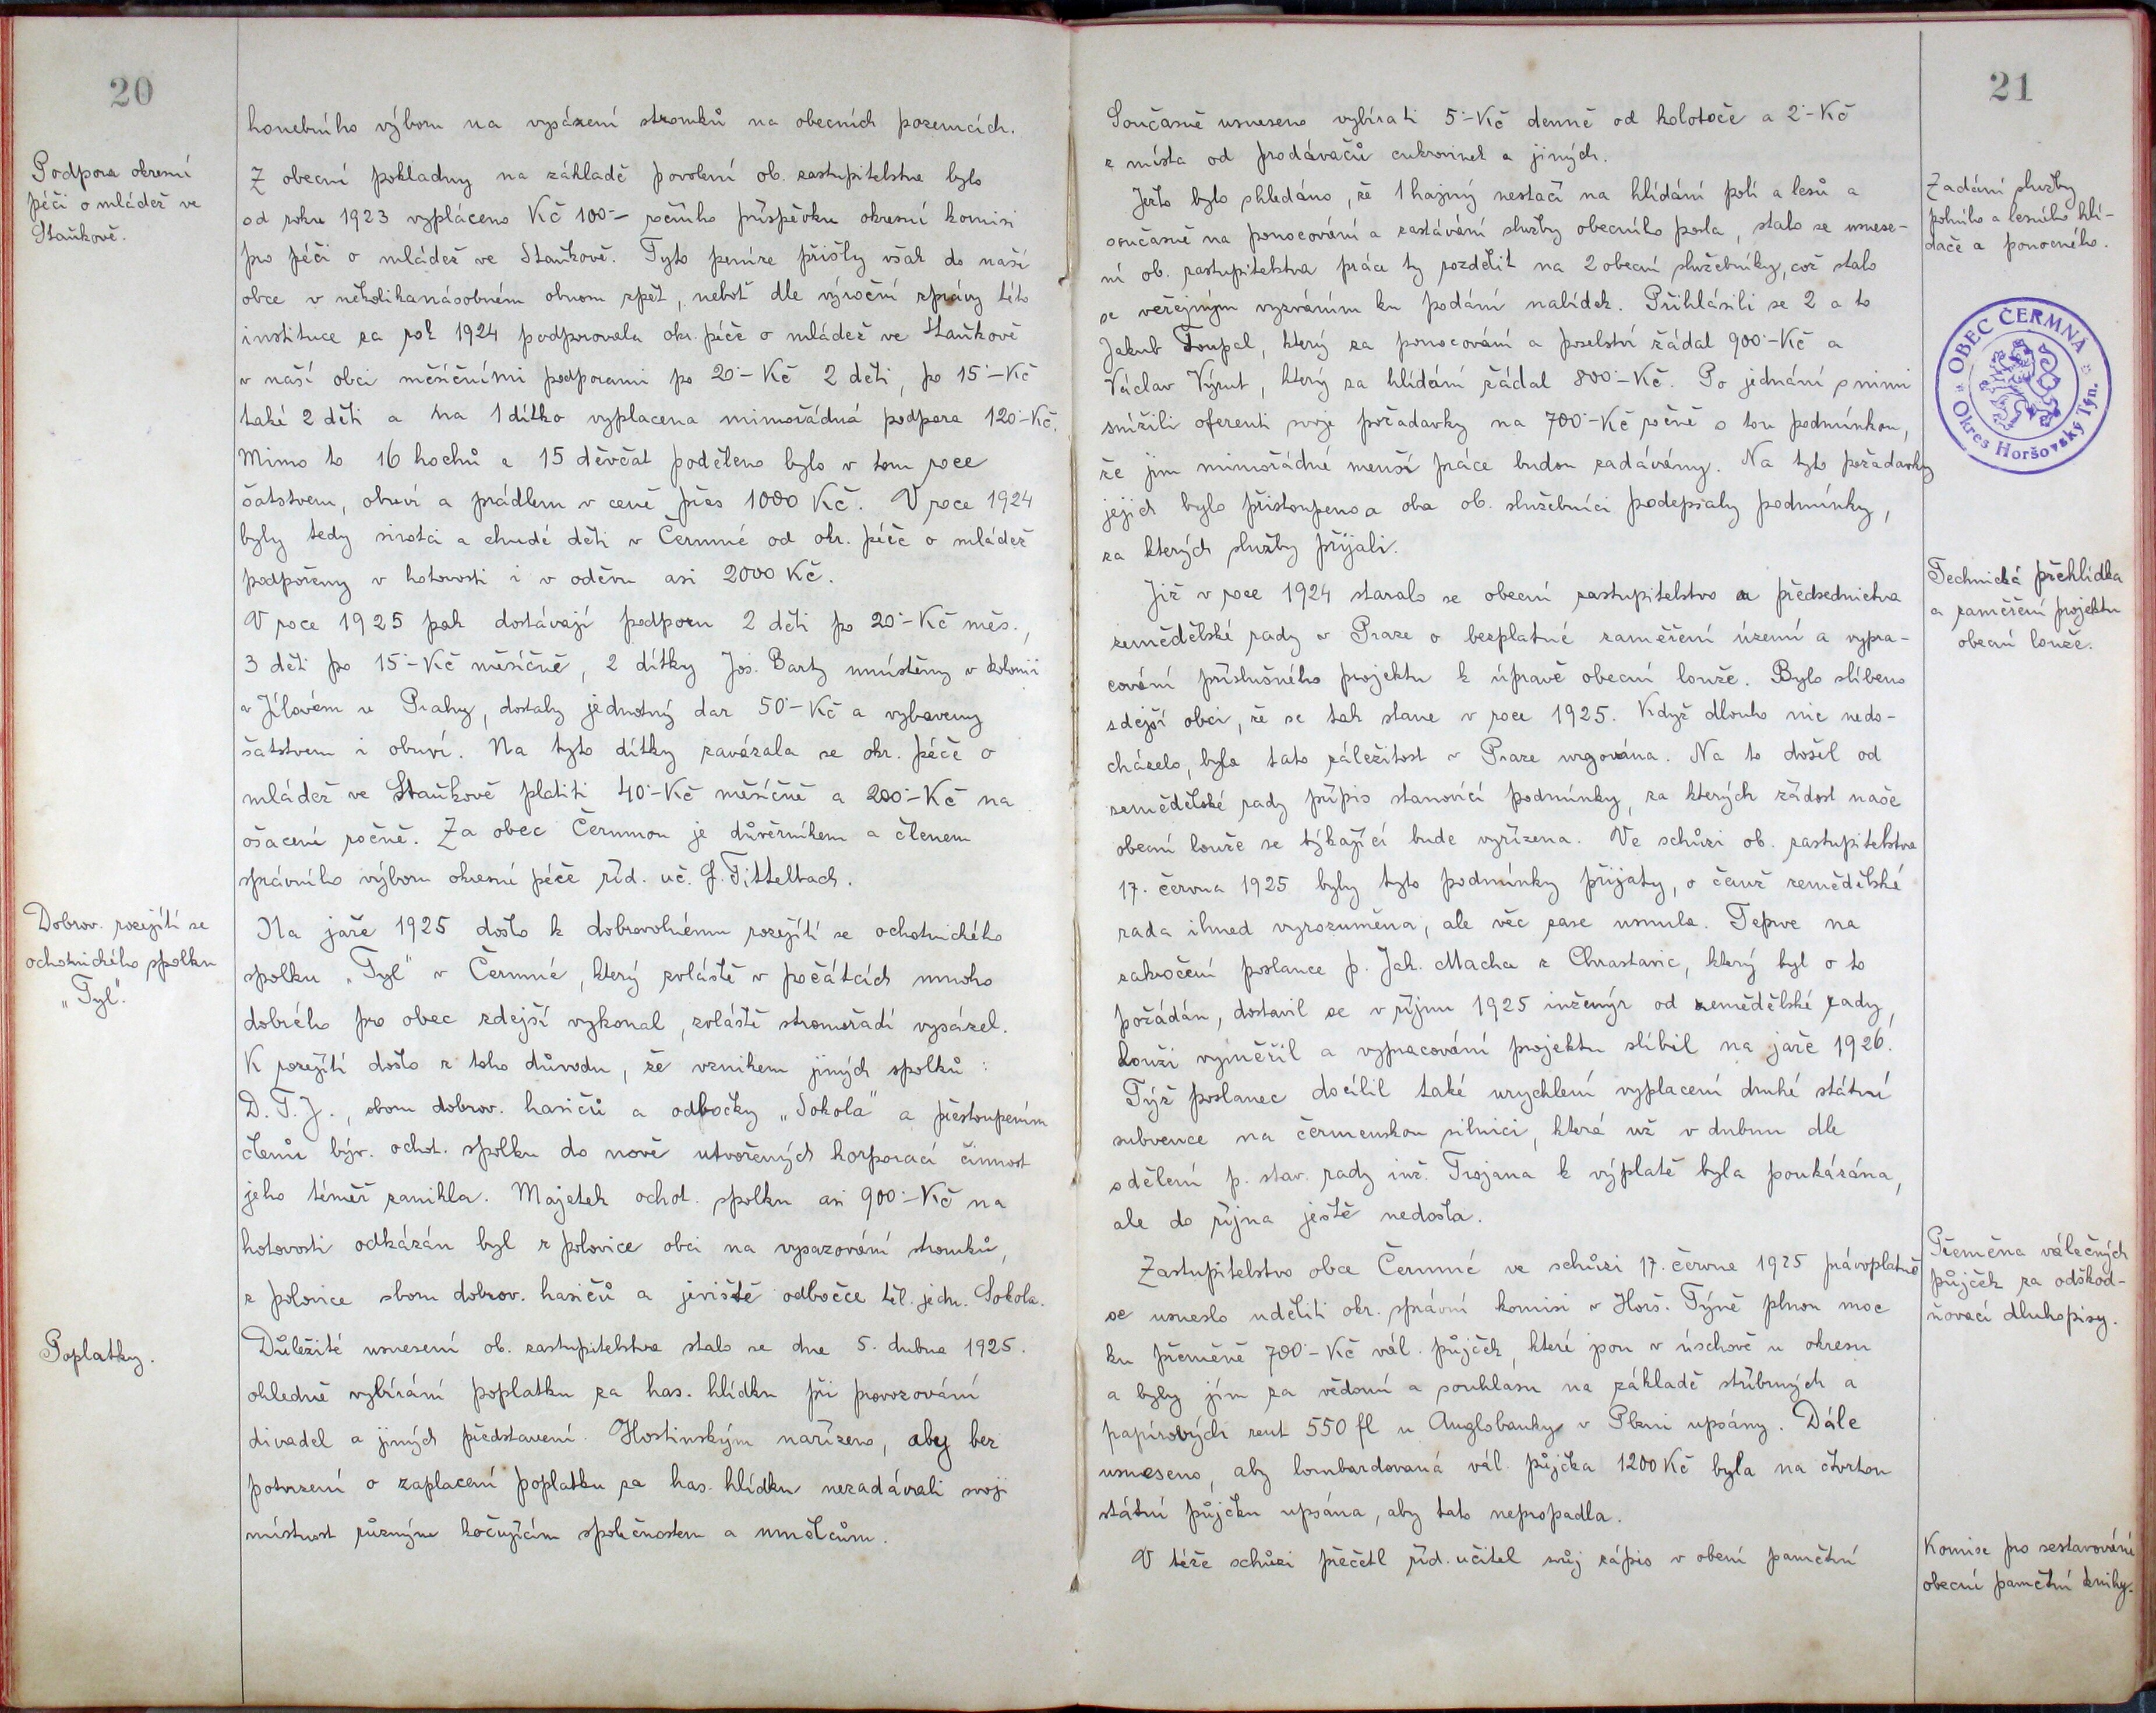 20
honebního výboru na vysázení stromků na obecních pozemcích.
Podpora okresní
péči o mládež ve
Staňkově.
Z obecní pokladny na základě povolení ob. zastupitelstva bylo
od roku 1923 vypláceno Kč 100·– ročního příspěvku okresní komisi
pro péči o mládež ve Staňkově. Tyto peníze přišly však do naší
obce v několikanásobném obnosu zpět, neboť dle výroční zprávy této
instituce za rok 1924 podporovala okr. péče o mládež ve Staňkově
v naší obci měsíčními podporami po 20·– Kč 2 děti, po 15·– Kč
také 2 děti a na 1 dítko vyplacena mimořádná podpora 120·– Kč.
Mimo to 16 hochů a 15 děvčat poděleno bylo v tom roce
šatstvem, obuví a prádlem v ceně přes 1000 Kč. V roce 1924
byly tedy sirotci a chudé děti v Čermné od okr. péče o mládež
podpořeny v hotovosti i v oděvu asi 2000 Kč.
V roce 1925 pak dostávají podporu 2 děti po 20·– Kč měs.,
3 děti po 15·– Kč měsíčně, 2 dítky Jos. Barty umístěny v kolonii
v Jílovém u Prahy, dostaly jednotný dar 50·– Kč a vybaveny
šatstvem i obuví. Na tyto dítky zavázala se okr. péče o
mládež ve Staňkově platiti 40·– Kč měsíčně a 200·– Kč na
ošacení ročně. Za obec Čermnou je důvěrníkem a členem
správního výboru okresní péče říd. uč. J. Tittelbach.
Dobrov. rozejití se
ochotnického spolku
„Tyl".
Na jaře 1925 došlo k dobrovolnému rozejití se ochotnického
spolku „Tyl" v Čermné, který zvláště v počátcích mnoho
dobrého pro obec zdejší vykonal, zvláště stromořadí vysázel.
K rozejití došlo z toho důvodu, že vznikem jiných spolků:
D. T. J., sboru dobrov. hasičů a odbočky „Sokola" a přestoupením
členů býv. ochot. spolku do nově utvořených korporací činnost
jeho téměř zanikla. Majetek ochot. spolku asi 900·– Kč na
hotovosti odkázán byl z polovice obci na vysazování stromků,
z polovice sboru dobrov. hasičů a jeviště odbočce těl. jedn. Sokola.
Poplatky.
Důležité usnesení ob. zastupitelstva stalo se dne 5. dubna 1925.
ohledně vybírání poplatku za has. hlídku při provozování
divadel a jiných představení. Hostinským nařízeno, aby bez
potvrzení o zaplacení poplatku za has. hlídku nezadávali svoji
místnost různým kočujícím společnostem a umělcům.
21
Současně usneseno vybírati 5·– Kč denně od kolotoče a 2·– Kč
z místa od prodávačů cukrovinek a jiných.
Zadání služby
polního a lesního hlí-
dače a ponocného.
Ježto bylo shledáno, že 1 hajný nestačí na hlídání polí a lesů a
současně na ponocování a zastávání služby obecního posla, stalo se usnese-
ní ob. zastupitelstva práce ty rozdělit na 2 obecní služebníky, což stalo
se veřejným vyzváním ku podání nabídek. Přihlásili se 2 a to
Jakub Toupal, který za ponocování a poselství žádal 900·– Kč a
Václav Výrut, který za hlídání žádal 800·– Kč. Po jednání s nimi
snížili oferenti svoje požadavky na 700·– Kč ročně s tou podmínkou,
že jim mimořádné menší práce budou zadávány. Na tyto požadavky
jejich bylo přistoupeno a oba ob. služebníci podepsaly podmínky,
za kterých služby přijali.
OBEC ČERMNÁ
Okres Horšovský Týn.
Technická přehlídka
a zaměření projektu
obecní louže.
Již v roce 1924 staralo se obecní zastupitelstvo u předsednictva
zemědělské rady v Praze o bezplatné zaměření území a vypra-
cování příslušného projektu k úpravě obecní louže. Bylo slíbeno
zdejší obci, že se tak stane v roce 1925. Když dlouho nic nedo-
cházelo, byla tato záležitost v Praze urgována. Na to došel od
zemědělské rady přípis stanovící podmínky, za kterých žádost naše
obecní louže se týkající bude vyřízena. Ve schůzi ob. zastupitelstva
17. června 1925 byly tyto podmínky přijaty, o čemž zemědělská
rada ihned vyrozuměna, ale věc zase usnula. Teprve na
zakročení poslance p. Jak. Macha z Chrastavic, který byl o to
požádán, dostavil se v říjnu 1925 inženýr od zemědělské rady,
louži vyměřil a vypracování projektu slíbil na jaře 1926.
Týž poslanec docílil také urychlení vyplacení druhé státní
subvence na čermenskou silnici, která už v dubnu dle
sdělení p. stav. rady inž. Trojana k výplatě byla poukázána,
ale do října ještě nedošla.
Přeměna válečných
půjček za odškod-
ňovací dluhopisy.
Zastupitelstvo obce Čermné ve schůzi 17. června 1925 právoplatně
se usneslo uděliti okr. správní komisi v Horš. Týně plnou moc
ku přeměně 700·– Kč vál. půjček, které jsou v úschově u okresu
a byly jím za vědomí a souhlasu na základě stříbrných a
papírových rent 550 fl u Anglobanky v Plzni upsány. Dále
usneseno, aby lombardovaná vál. půjčka 1200 Kč byla na čtvrtou
státní půjčku upsána, aby tato nepropadla.
Komise pro sestavování
obecní pamětní knihy.
V téže schůzi přečetl říd. učitel svůj zápis v obení pamětní